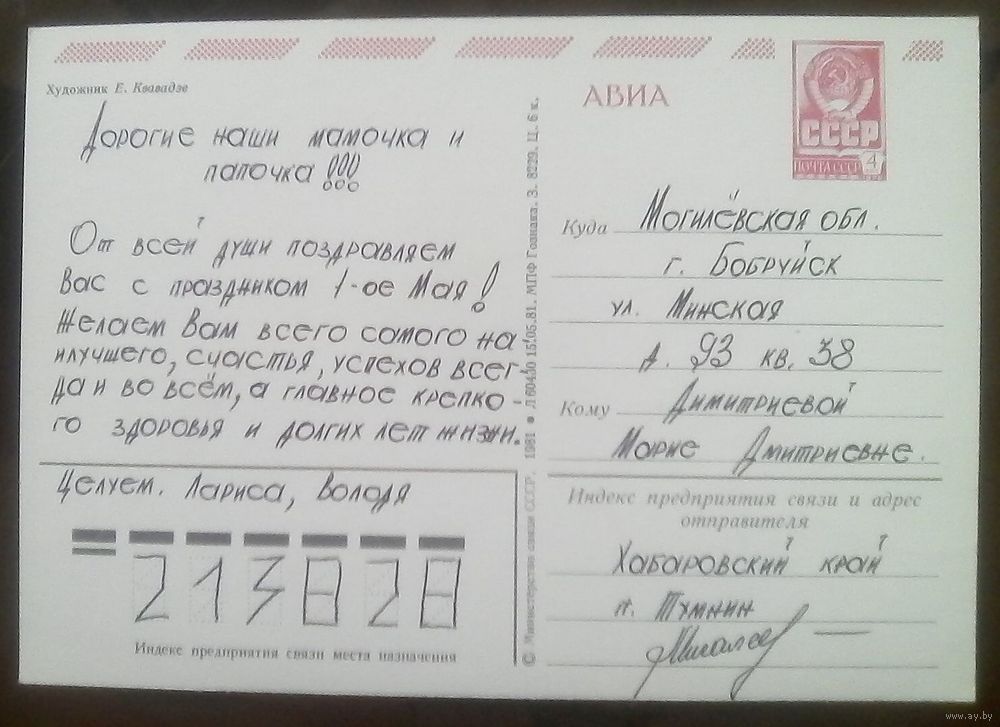 Художник Е. Квавадзе
Дорогие наши мамочка и
папочка!!!
От всей души поздравляем
Вас с праздником 1-ое Мая!
Желаем Вам всего самого на
илучшего, счастья, успехов всег-
да и во всём, а главное крепко-
го здоровья и долгих лет жизни.
Целуем. Лариса, Володя
213828
Индекс предприятия связи места назначения
© Министерство связи СССР. 1981 ● Л 60430 15.05.81. МПФ Гознака. З. 8229. Ц. 6 к.
АВИА
СССР
ПОЧТА СССР 4
Куда Могилёвская обл.
г. Бобруйск
ул. Минская
д. 93 кв. 38
Кому Димитриевой
Марие Дмитриевне.
Индекс предприятия связи и адрес
отправителя
Хабаровский край
п. Тумнин
www.ay.by